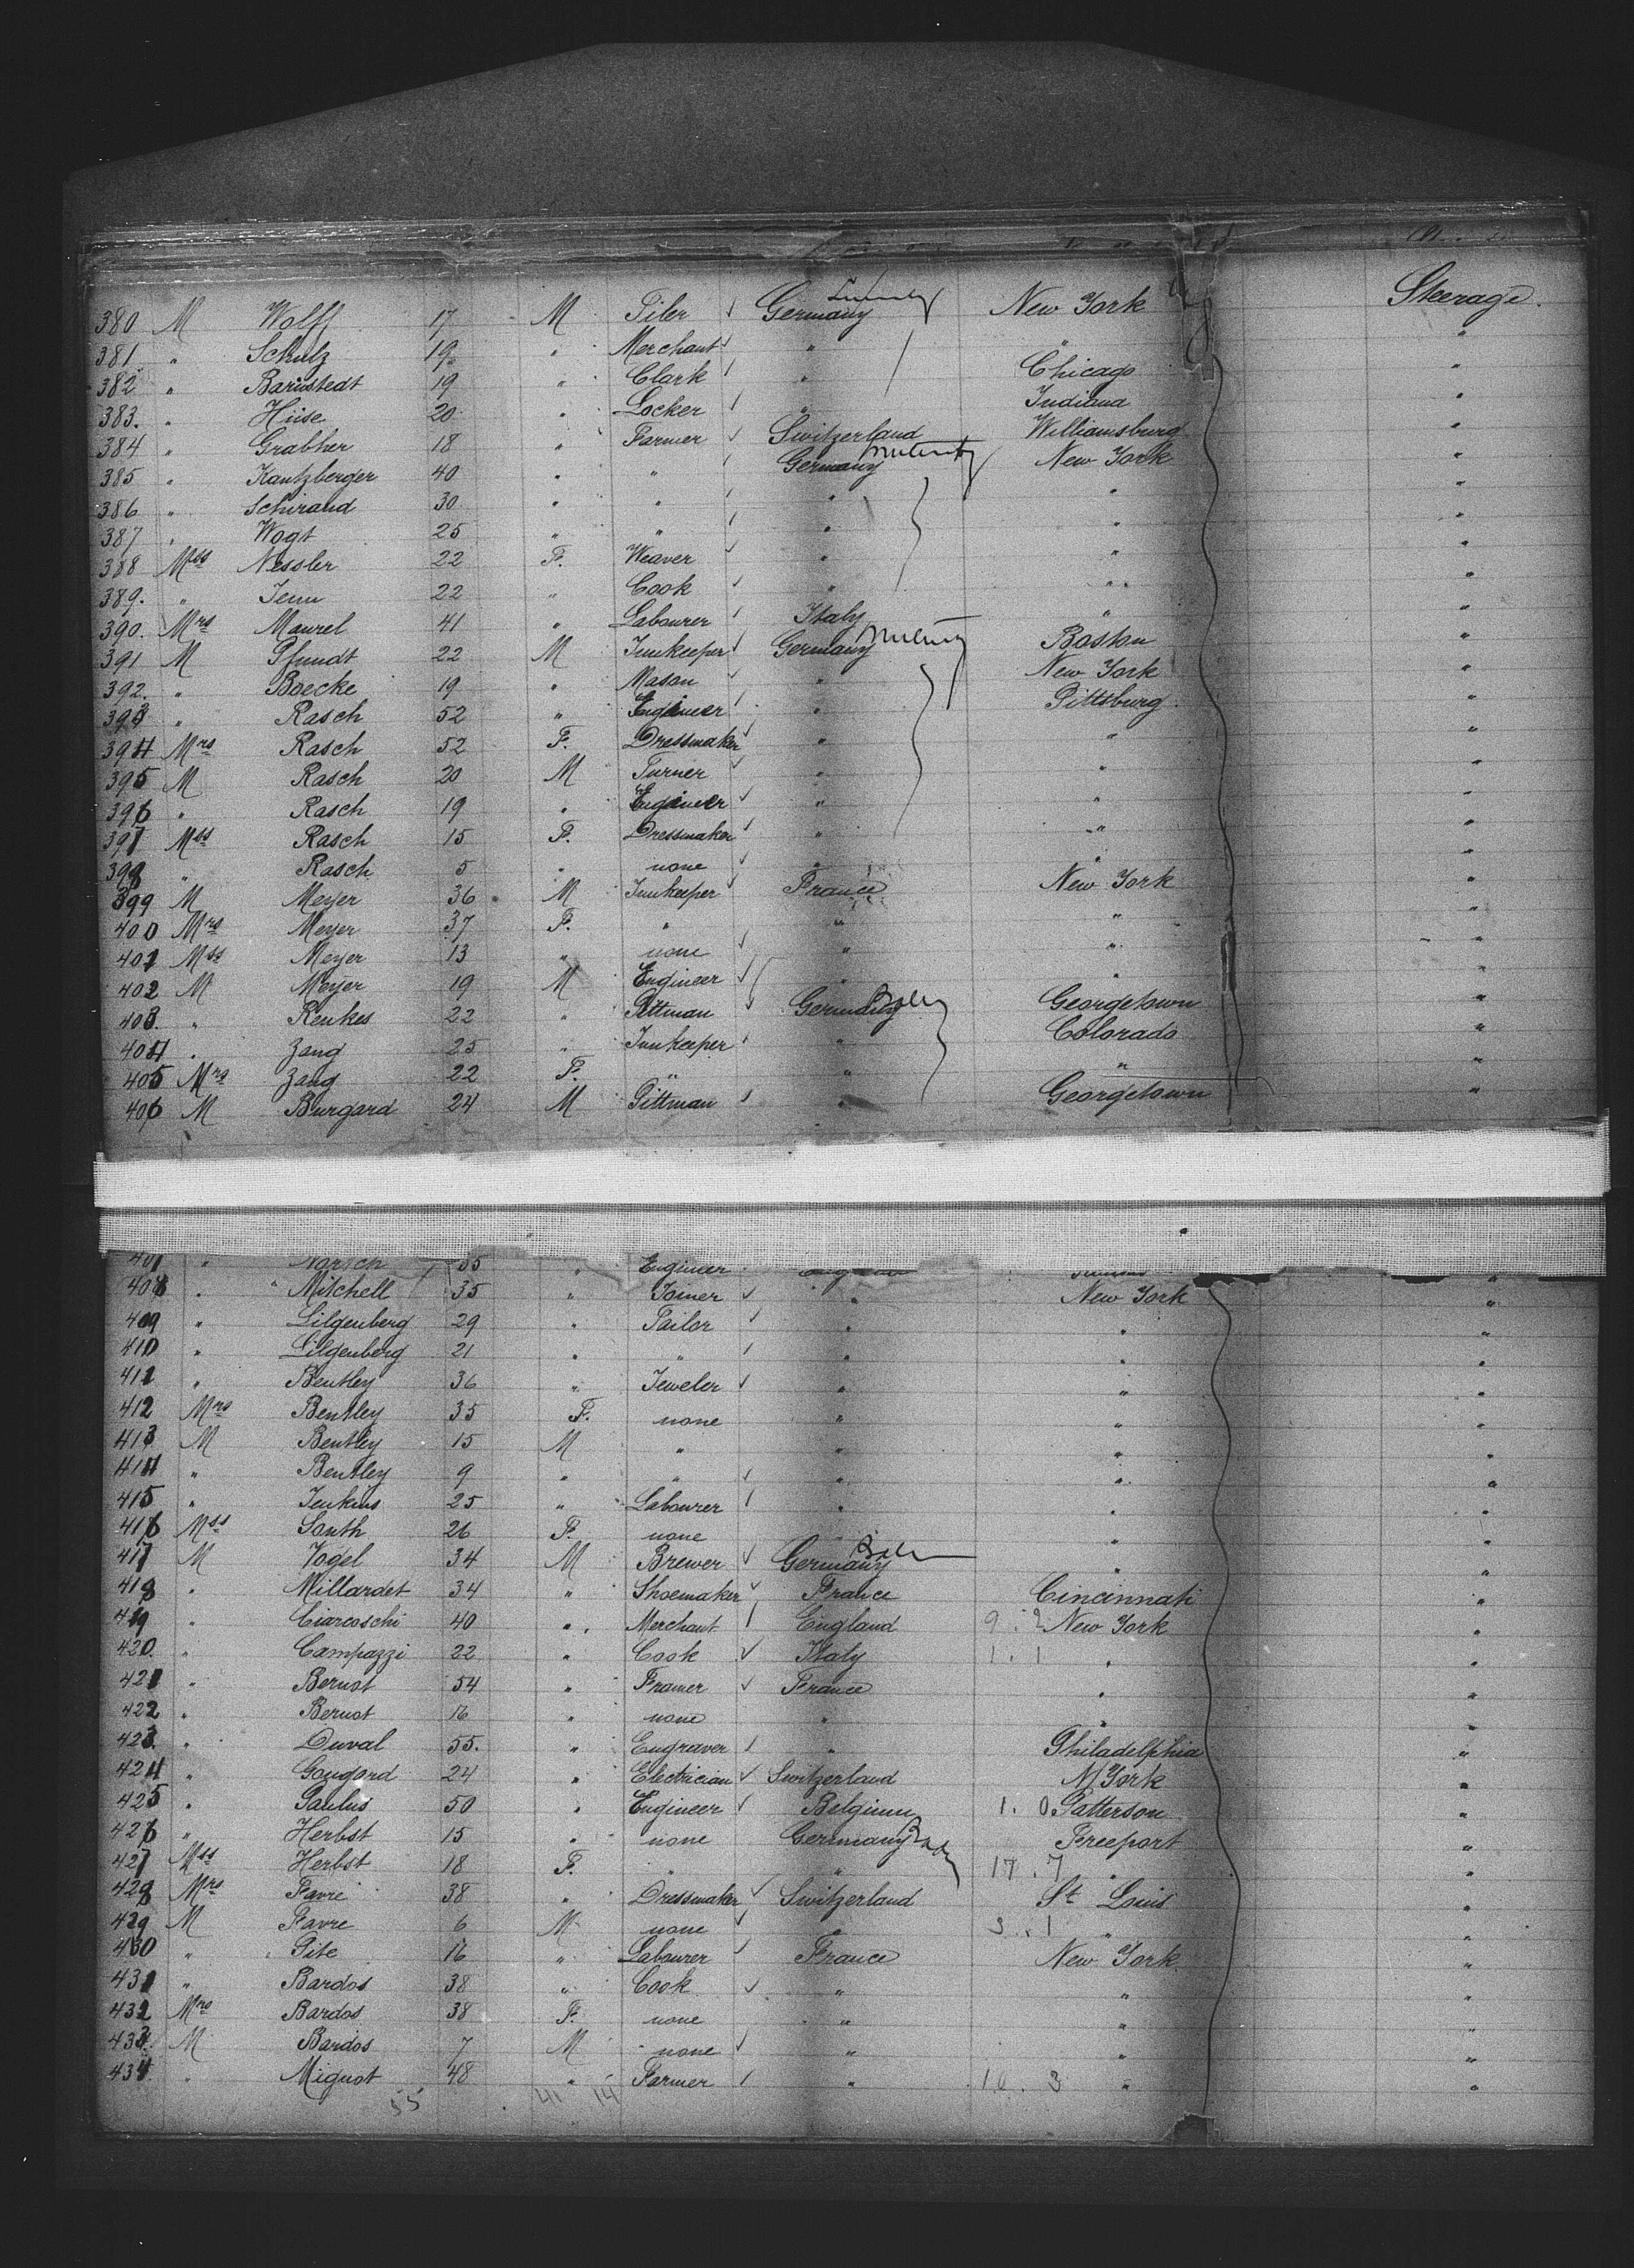 380 M Wolff 17 M Tiler ✓ Germany New York Steerage.
381. " Schulz 19 " Merchant ✓ " " "
382 " Barnstedt 19 " Clark " Chicago "
383. " Hüse 20 " Locker " Indiana "
384 " Grabher 18 " Farmer ✓ Switzerland Williamsburg "
385 " Kantzberger 40 " " Germany New York "
386 " Schiraud 30 " " " " "
387 " Wogt 25 " " " " "
388 Mss Nessler 22 F. Weaver ✓ " " "
389. " Jenn 22 " Cook ✓ " " "
390. Mrs Maurel 41 " Labourer Italy " "
391 M Pfundt 22 M Innkeeper Germany Boston "
392. " Boecke 19 " Mason ✓ " New York "
393 " Rasch 52 " Engineer " Pittsburg. "
394 Mrs Rasch 52 F. Dressmaker " " "
395 M Rasch 20 M Turner ✓ " " "
396 " Rasch 19 " Engineer ✓ " " "
397 Mss Rasch 15 F. Dressmaker ✓ " " "
398 " Rasch 5 " none ✓ " " "
399 M Meyer 36 M Innkeeper ✓ France New York "
400 Mrs Meyer 37 F. " " " "
401 Mss Meyer 13 " none ✓ " " "
402 M Meyer 19 M Engineer ✓ " " "
403. " Renkes 22 " Pittman ✓ Germany Georgetown "
404 " Zang 25 " Innkeeper " Colorado "
405 Mrs Zang 22 F. " " " "
406 M Burgard 24 M Pittman " Georgetown "
407 " 35 " Engineer "
408 " Mitchell 35 " Joiner ✓ " New York "
409 " Lilgenberg 29 " Tailor ✓ " " "
410 " Lilgenberg 21 " " " " "
411 " Bentley 36 " Jeweler ✓ " " "
412 Mrs Bentley 35 F. none " " "
413 M Bentley 15 M " " " "
414 " Bentley 9 " " ✓ " " "
415 " Jenkins 25 " Labourer " " "
416 Mss South 26 F. none " "
417 M Vogel 34 M Brewer ✓ Germany " "
418 " Millardet 34 " Shoemaker ✓ France Cincinnati "
419 " Ciarcoschi 40 " Merchant England New York "
420. " Campazzi 22 " Cook ✓ Italy 1. 1 "
421 " Bernot 54 " Framer ✓ France " "
422 " Bernot 16 " none " " "
423. " Duval 55. " Engraver " Philadelphia "
424 " Gougord 24 " Electrician ✓ Switzerland N/York "
425 " Paulus 50 " Engineer ✓ Belgium 1. 0 Patterson "
426 " Herbst 15 " none Germany Freeport "
427 Mss Herbst 18 F. " " 17. 7 " "
428 Mrs Favre 38 " Dressmaker ✓ Switzerland St Louis "
429 M Favre 6 M none ✓ " 3. 1 " "
430 " Pite 16 " Labourer ✓ France New York "
431 " Bardos 38 " Cook ✓ " " "
432 Mrs Bardos 38 F. none " " "
433. M Bardos 7 M none ✓ " " "
434. " Mignot 48 " Farmer " " "
55 41 14